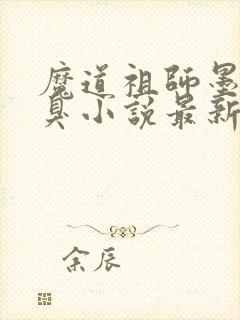 魔道祖師墨
臭小說最新
余辰